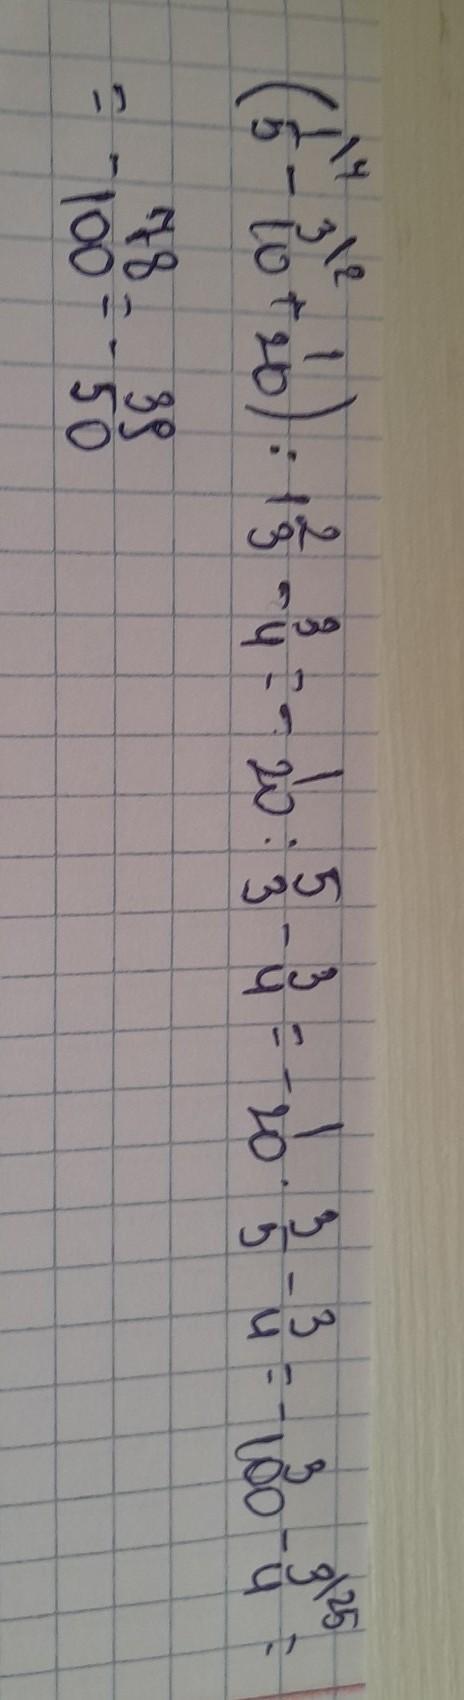 (1/5\4 - 3/10\2 + 1/20) : 1 2/3 - 3/4 = - 1/20 : 5/3 - 3/4 = - 1/20 · 3/5 - 3/4 = - 3/100 - 3/4\25 =
= - 78/100 = - 39/50